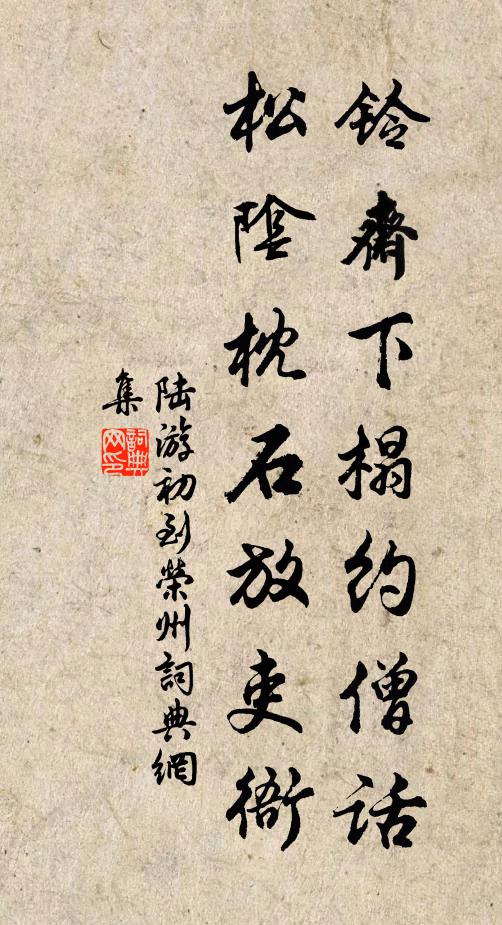 铃斋下榻约僧话
松阴枕石放吏衙
陆游初到荣州詞典網
集
詞典网印